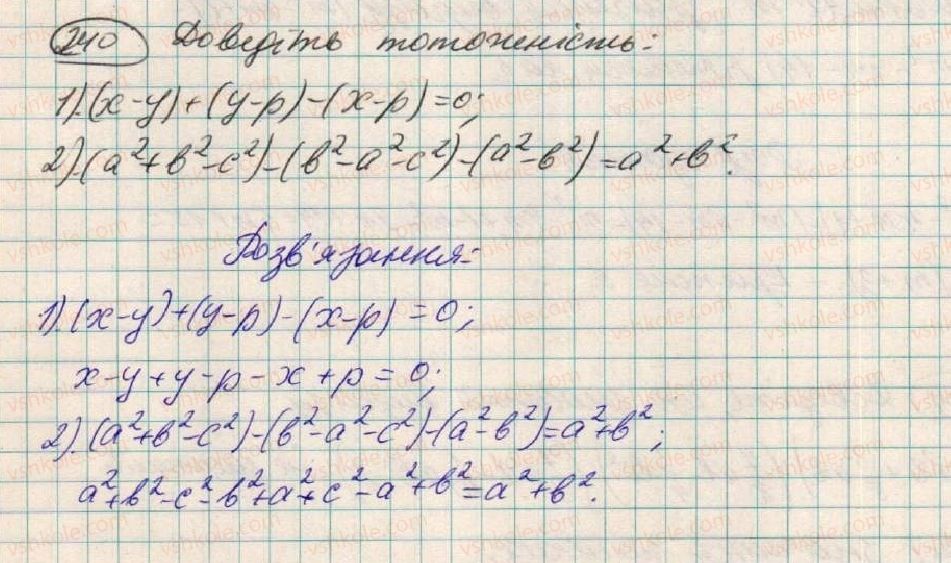 240 Доведіть тотожність:
1).(x-y)+(y-p)-(x-p)=0;
2).(a²+b²-c²)-(b²-a²-c²)-(a²-b²)=a²+b².
Розв'язання:
1).(x-y)+(y-p)-(x-p)=0;
x-y+y-p-x+p=0;
2).(a²+b²-c²)-(b²-a²-c²)-(a²-b²)=a²+b²;
a²+b²-c²-b²+a²+c²-a²+b²=a²+b².